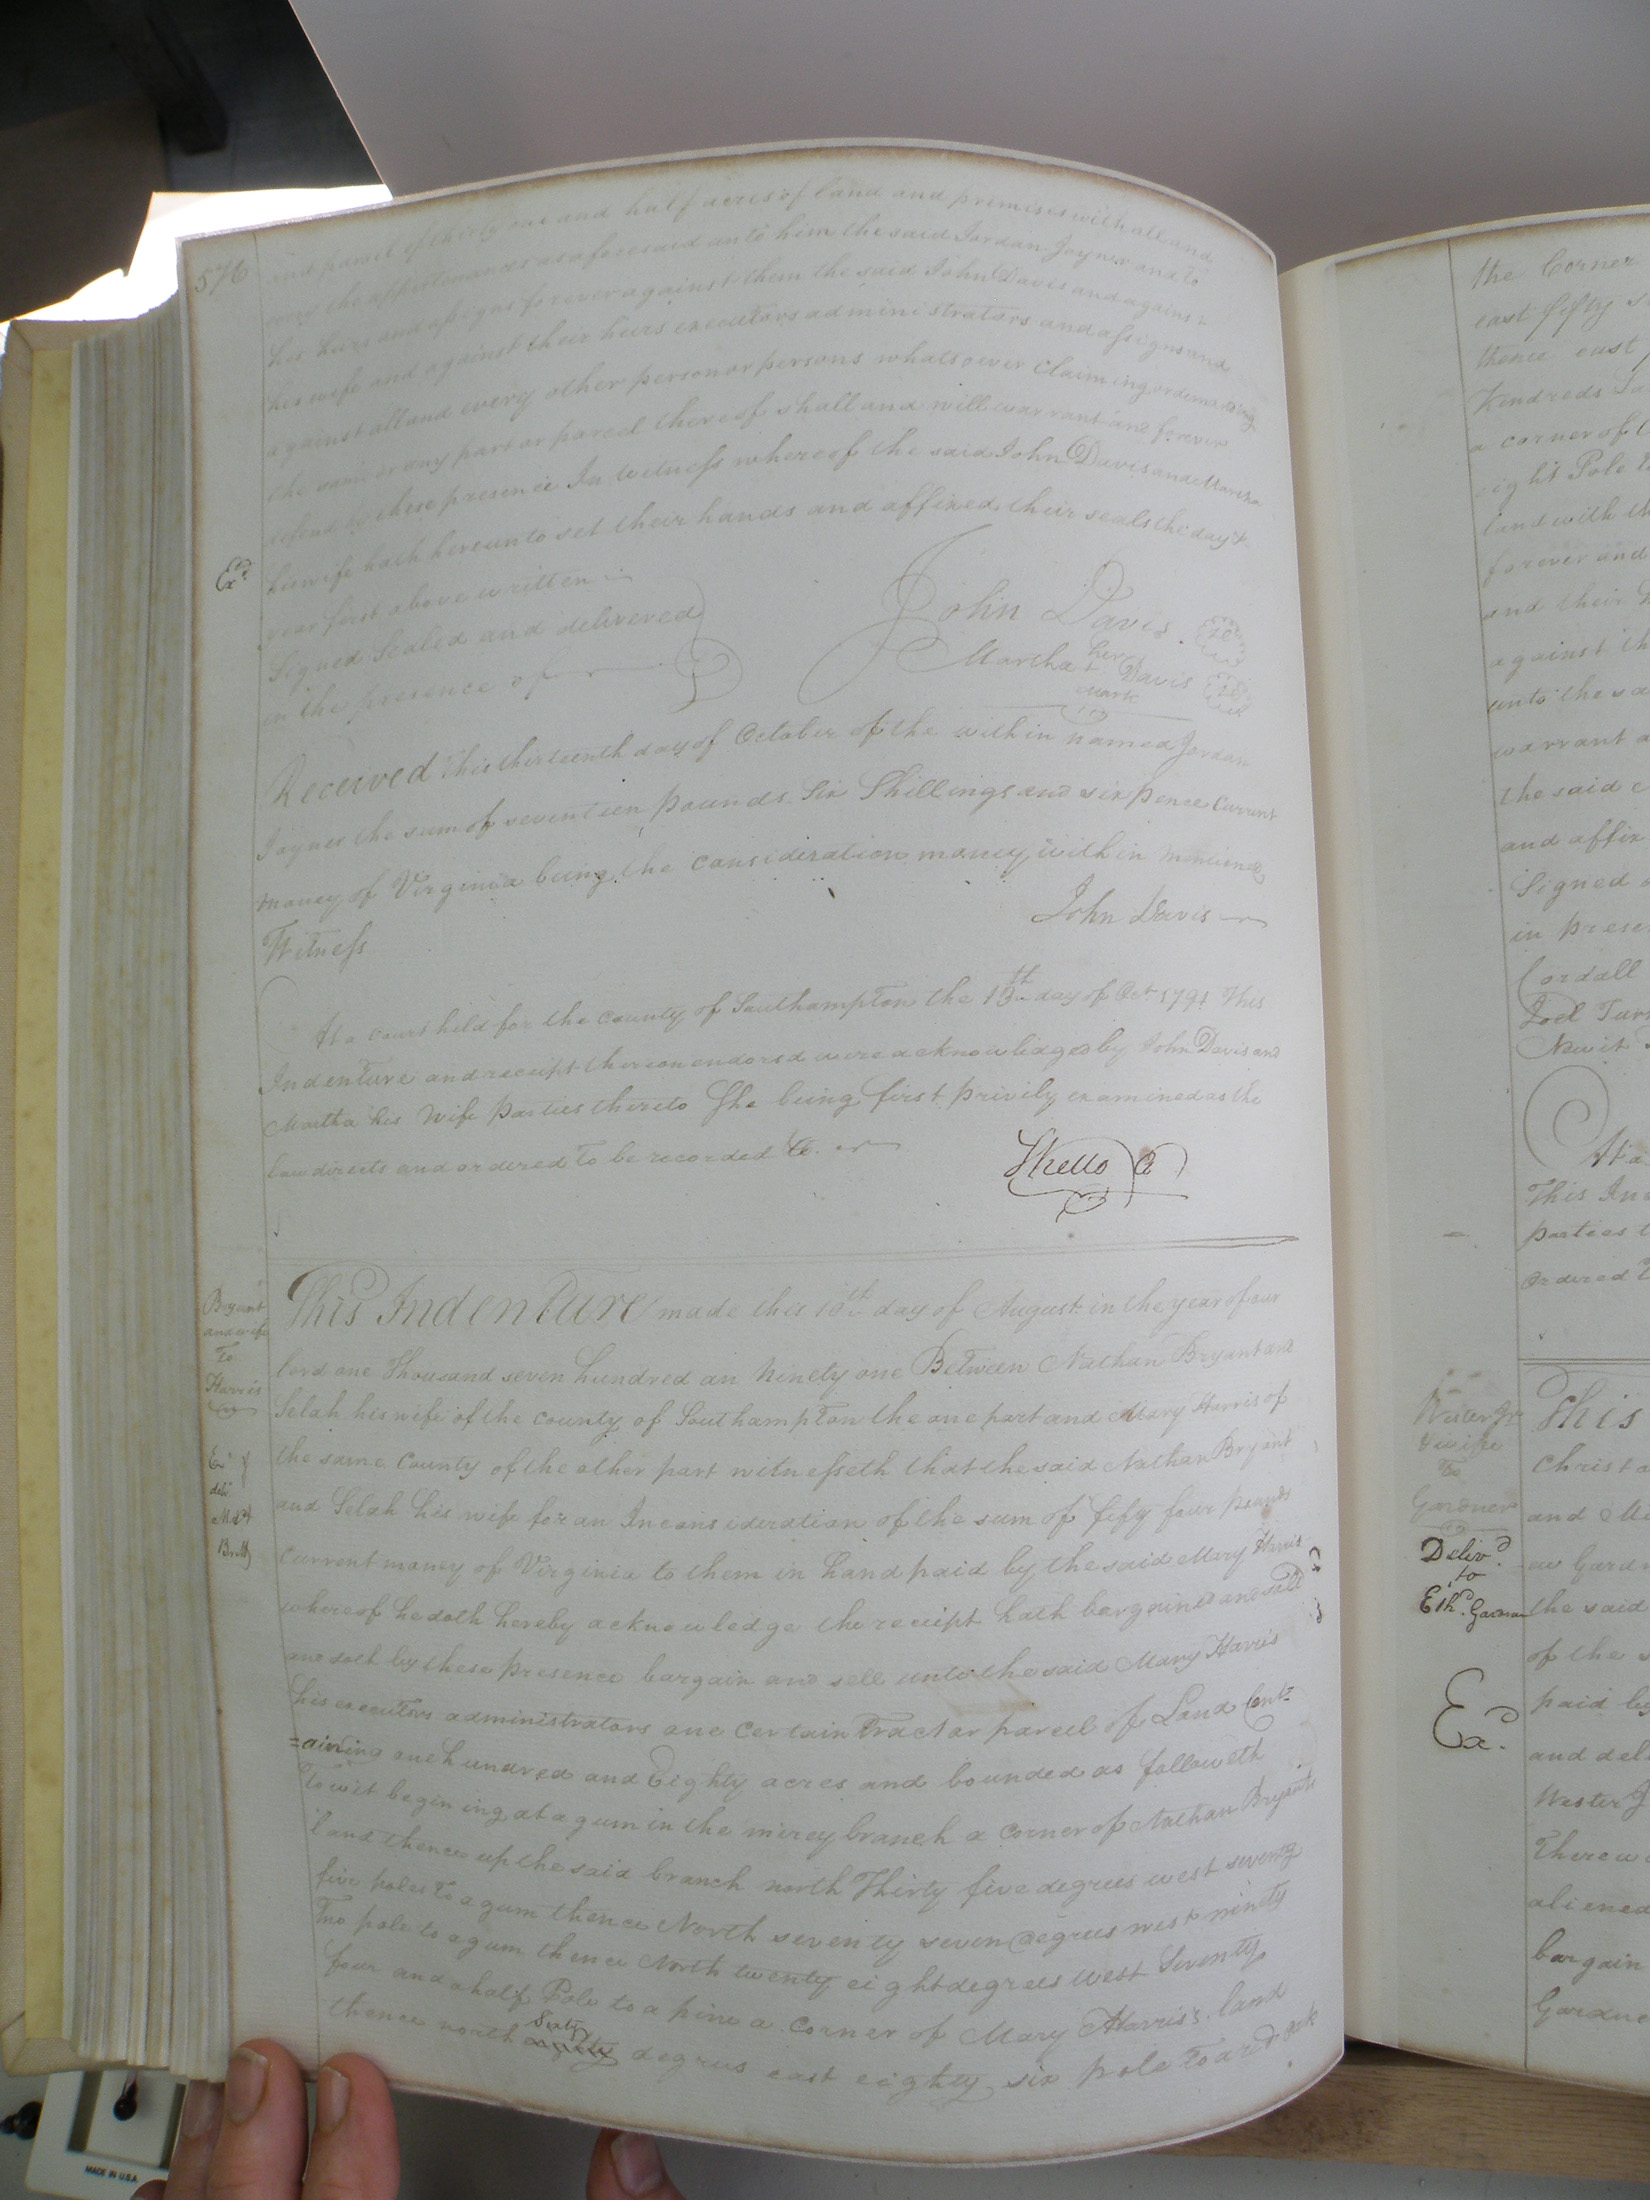 576
and parcel of thirty one and half acres of land and premises with all and
every the appurtenances as aforesaid unto him the said Jordan Joyner and to
his heirs and assigns forever against them the said John Davis and against
his wife and against their heirs executors administrators and assigns and
against all and every other person or persons whatsoever Claiming or demanding
the same or any part or parcel thereof shall and will warrant and forever
defend by these presence In witness whereof the said John Davis and Martha
his wife hath hereunto set their hands and affixed their seals the day &
year first above written
Exd
Signed Sealed and delivered
in the presence of
John Davis
Martha her + mark Davis
Received this thirteenth day of October of the within named Jordan
Joyner the sum of seventeen pounds Six Shillings and six pence Current
money of Virginia being the consideration money within mentioned
John Davis
Witness
At a court held for the county of Southampton the 13th day of Oct 1791 This
Indenture and receipt thereon endorsed were acknowledged by John Davis and
Martha his Wife Parties thereto She being first privily examined as the
law directs and ordered to be recorded
Bryant
and wife
To
Harris
This Indenture made this 10th day of August in the year of our
lord one Thousand seven hundred an Ninety one Between Nathan Bryant and
Selah his wife of the county of Southampton the one part and Mary Harris of
the same County of the other part witnesseth that the said Nathan Bryant
and Selah his wife for an In consideration of the sum of fifty four pounds
Current money of Virginia to them in hand paid by the said Mary Harris
whereof he doth hereby acknowledge the receipt hath bargained and sold
and doth by these presence bargain and sell unto the said Mary Harris
his executors administrators one Certain Tract or parcel of Land Cont=
=aining one hundred and Eighty acres and bounded as followeth
To wit begining at a gum in the mirey branch a Corner of Nathan Bryants
land thence up the said branch north Thirty five degrees west seventy
five poles to a gum thence North seventy seven degrees west ninety
Two pole to a gum thence North twenty eight degrees west Seventy
four and a half Pole to a pine a Corner of Mary Harris's land
thence north Sixty degrees east eighty six pole to a red oak
the Corner
east fifty
thence east
Kindreds
a corner of
eight Pole
land with
forever and
and their
against
unto the
warrant
the said
and affix
Signed
in prese
Cordall
Joel
Newit
At a
This In
parties
ordered
& wife
To
Gardner
Delivd
to
This
Christ
and
the said
of the
Exd
paid by
and del
Wester
There
aliened
bargain
Gardne
MADE IN U.S.A.